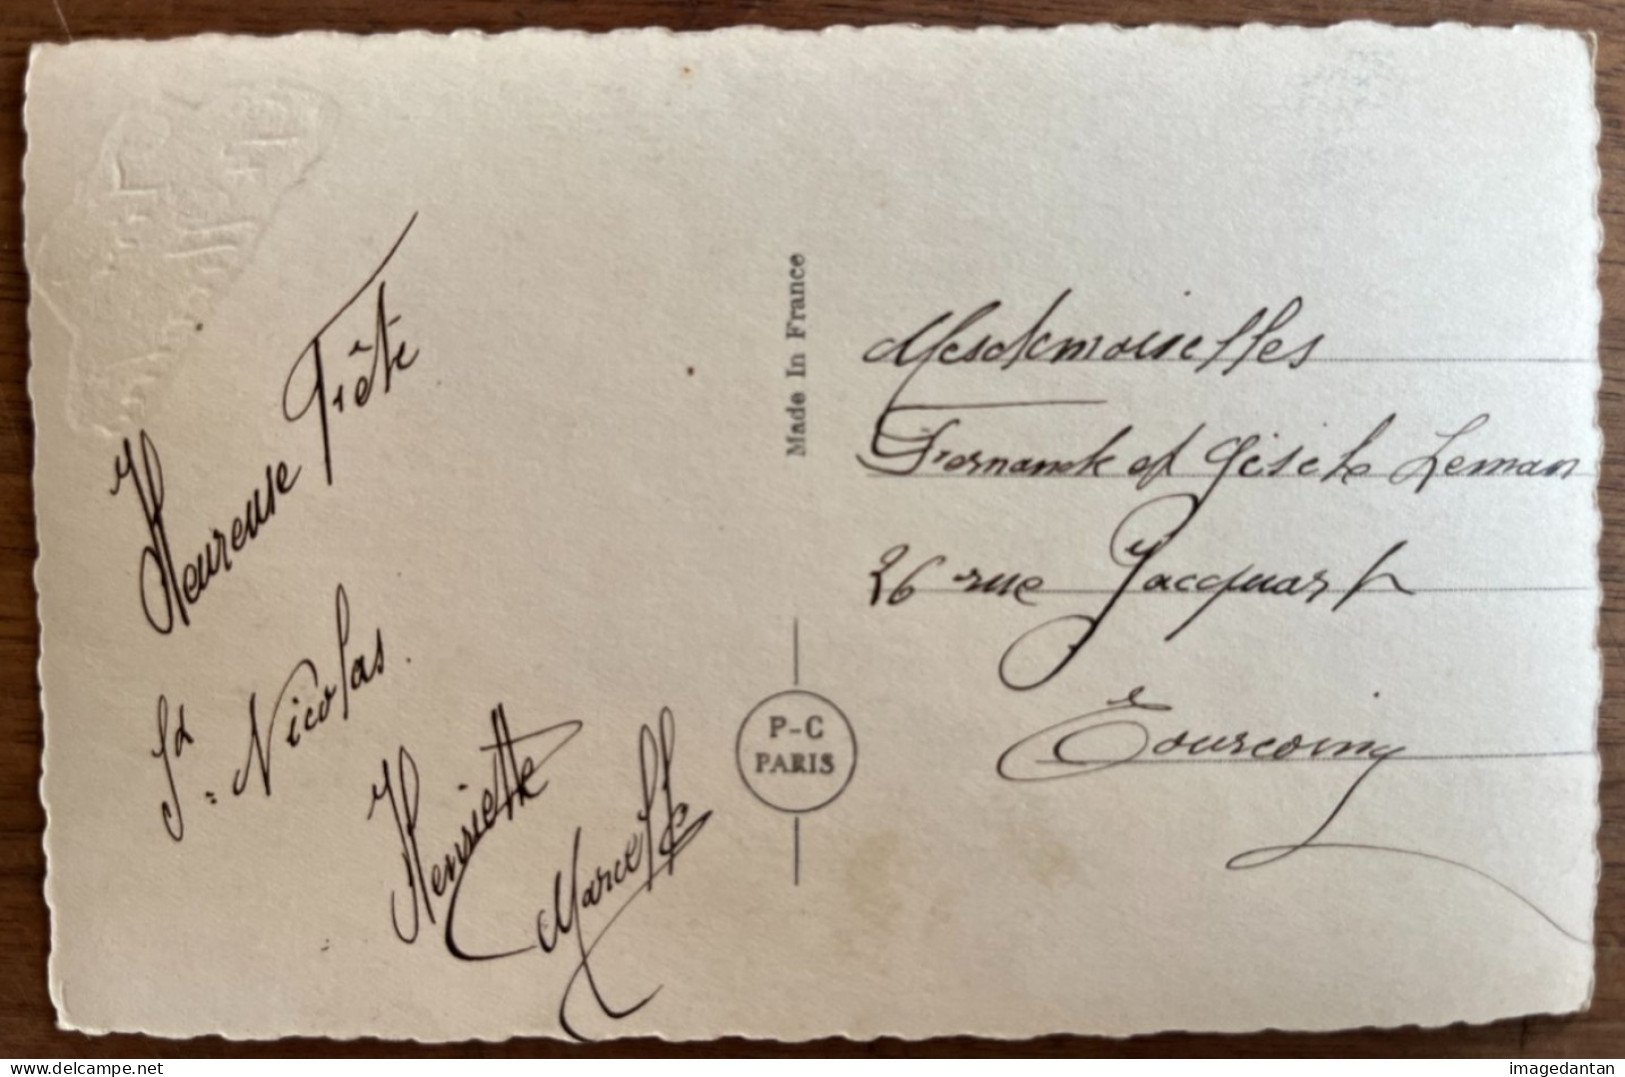 Heureuse Fête
St. Nicolas.
Henriette
Marcelle
Made In France
P-C
PARIS
Mesdemoiselles
Fernande et Gisèle Leman
26 rue Jacquart
Tourcoing
delcampe.net
imagedantan